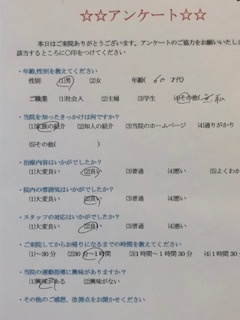 ☆☆アンケート☆☆
本日はご来院ありがとうございます。アンケートのご協力をお願いいたし
該当するところに〇印をつけてください
・年齢,性別を教えてください
性別 (1)男 (2)女 年齢( 60 才代)
ご職業 (1)社会人 (2)主婦 (3)学生 (4)その他(
・当院を知ったきっかけは何ですか?
(1)家族の紹介 (2)知人の紹介 (3)当院のホームページ (4)通りがかり
(5)その他( )
・治療内容はいかがでしたか?
(1)大変良い (2)良い (3)普通 (4)悪い (5)よくわか
・院内の雰囲気はいかがでしたか?
(1)大変良い (2)良い (3)普通 (4)悪い
・スタッフの対応はいかがでしたか?
(1)大変良い (2)良い (3)普通 (4)悪い
・ご来院してからお帰りになるまでの時間を教えてください
(1)～30分 (2)30分～1時間 (3)1時間～1時間30分 (4)1時間30
・当院の運動指導に興味がありますか?
(1)興味がある (2)興味がない
・その他のご感想、改善点をお聞かせください